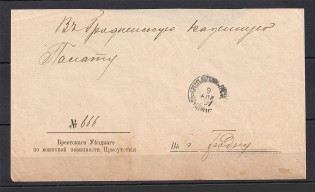 Въ Гродненскую казенную
Палату
№ 666
Брестскаго Уѣзднаго
по воинской повинности Присутствія
Въ г. Гродну